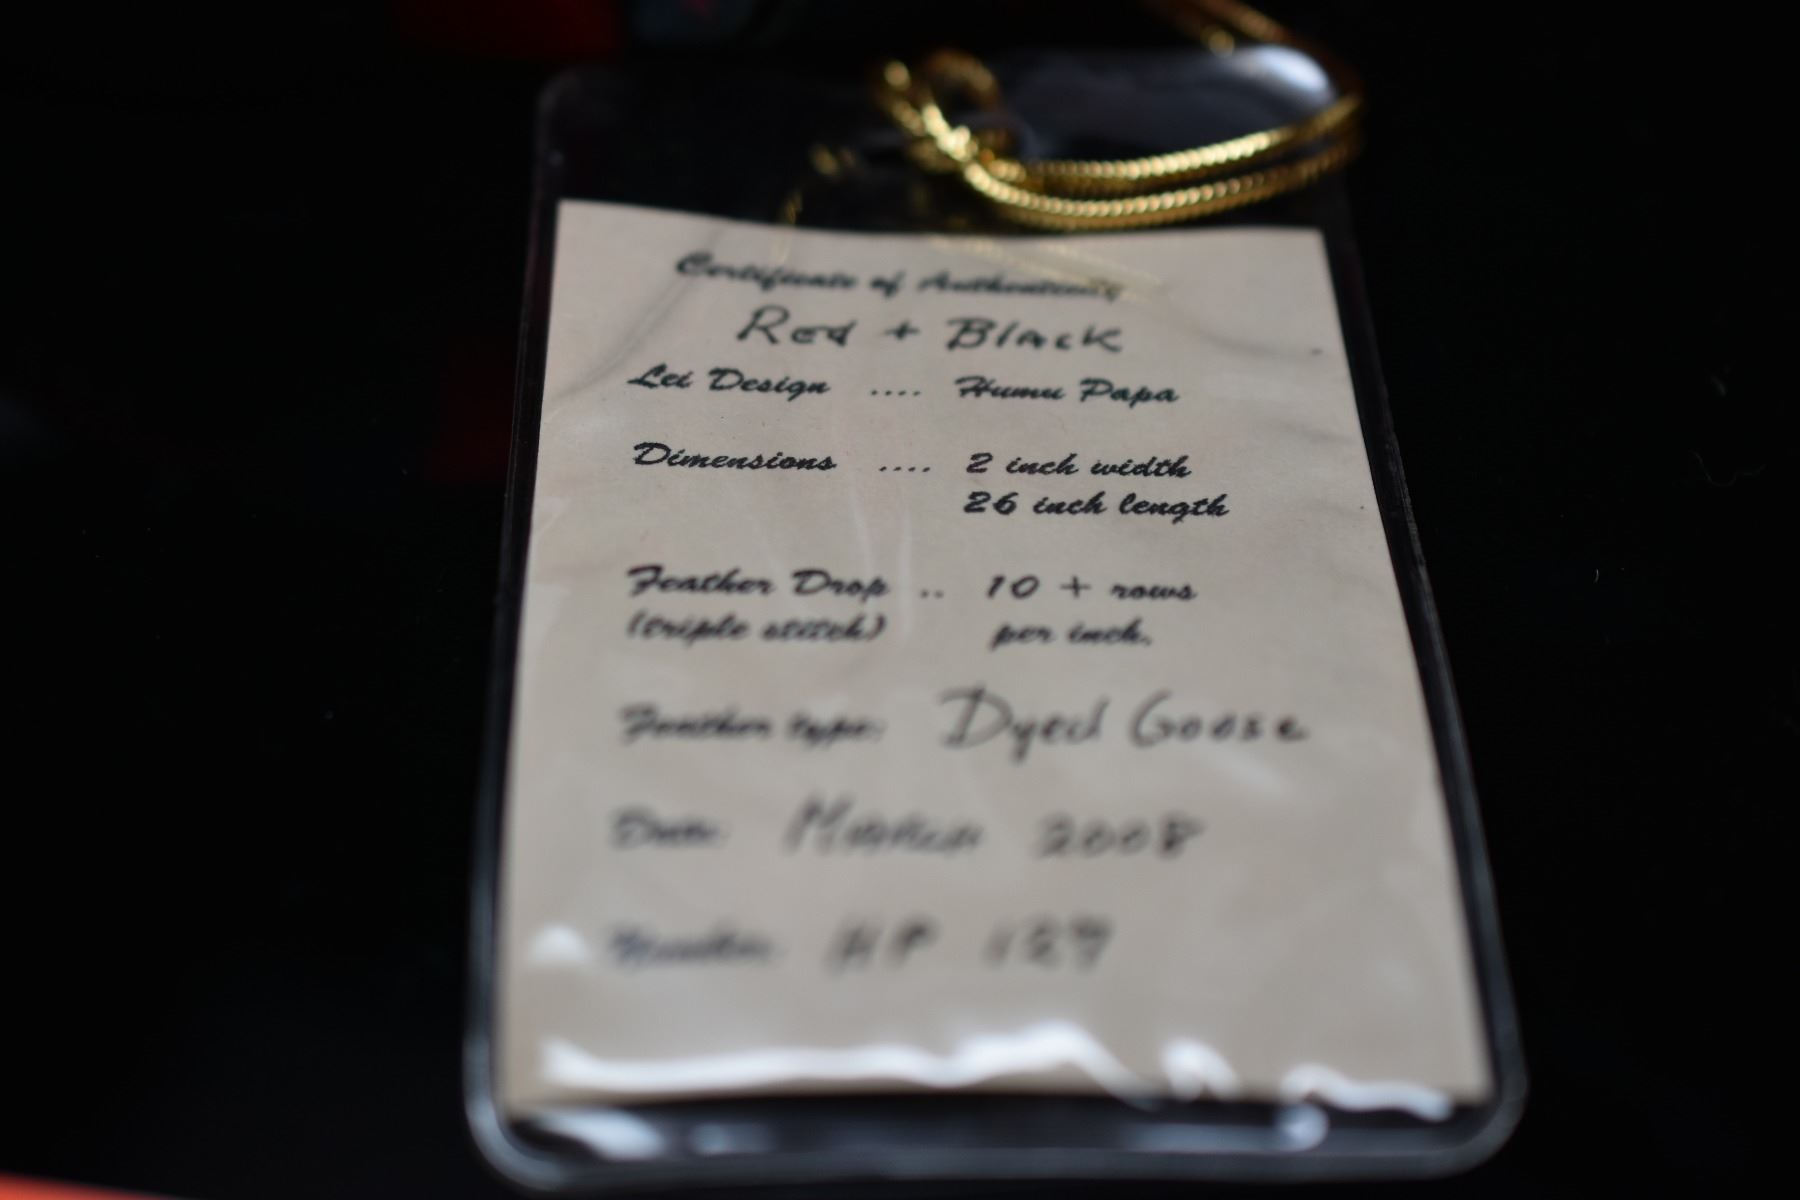 Certificate of Authenticity
Red + Black
Lei Design .... Humu Papa
Dimensions .... 2 inch width
26 inch length
Feather Drop .. 10 + rows
(triple stitch) per inch.
Feather type: Dyed Goose
Date: March 2008
Number: HP 127